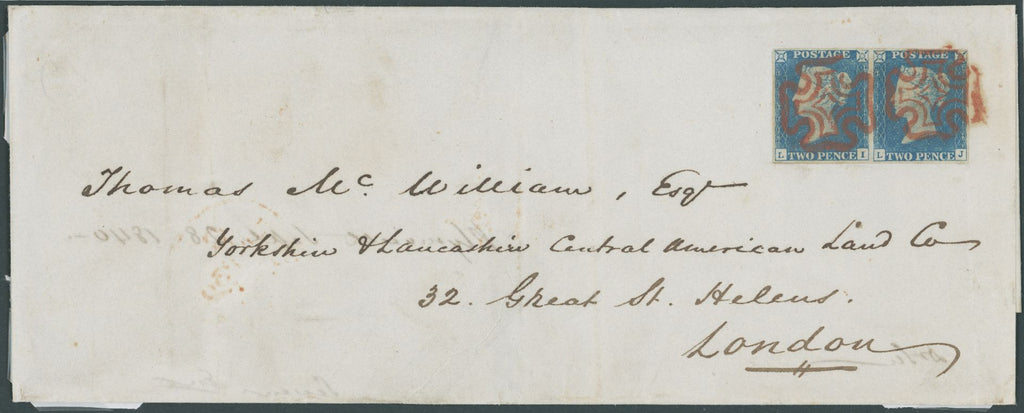 POSTAGE POSTAGE
L TWO PENCE I L TWO PENCE J
Thomas Mc. William, Esqr
Yorkshire & Lancashire Central American Land Co
32. Great St. Helens.
London
28. 1840